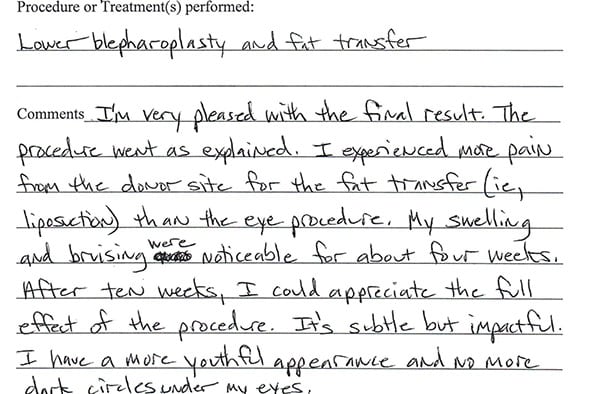 Procedure or Treatment(s) performed:
Lower blepharoplasty and fat transfer
Comments I'm very pleased with the final result. The
procedure went as explained. I experienced more pain
from the donor site for the fat transfer (ie,
liposuction) than the eye procedure. My swelling
and bruising were noticeable for about four weeks.
After ten weeks, I could appreciate the full
effect of the procedure. It's subtle but impactful.
I have a more youthful appearance and no more
dark circles under my eyes.